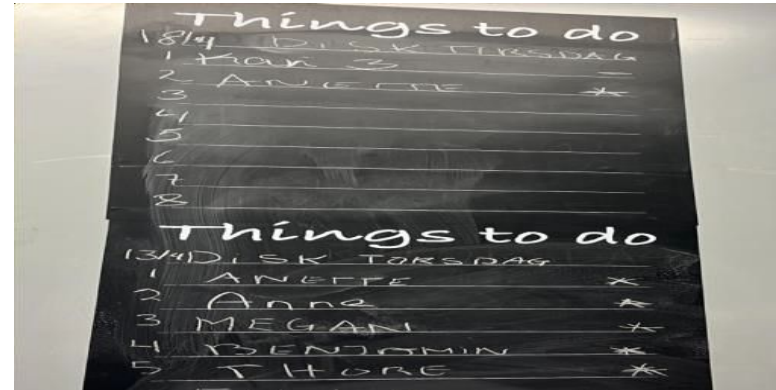 Things to do
18/4 DISK TIRSDAG
1 Kan 3 -
2 ANETTE *
3
4
5
6
7
8
Things to do
13/4 DISK TORSDAG
1 ANETTE *
2 Anne *
3 MEGAN *
4 BENJAMIN *
5 THORE *